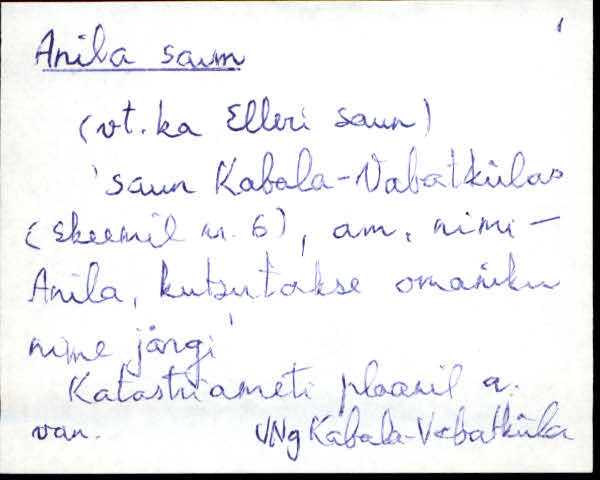 1
Anila saun
(vt. ka Elleri saun)
'saun Kabala-Vabatkülas
(skeemil nr. 6), am. nimi -
Anila, kutsutakse omaniku
nime järgi'
Katastriameti plaanil a.
van. VNg Kabala-Vabatküla